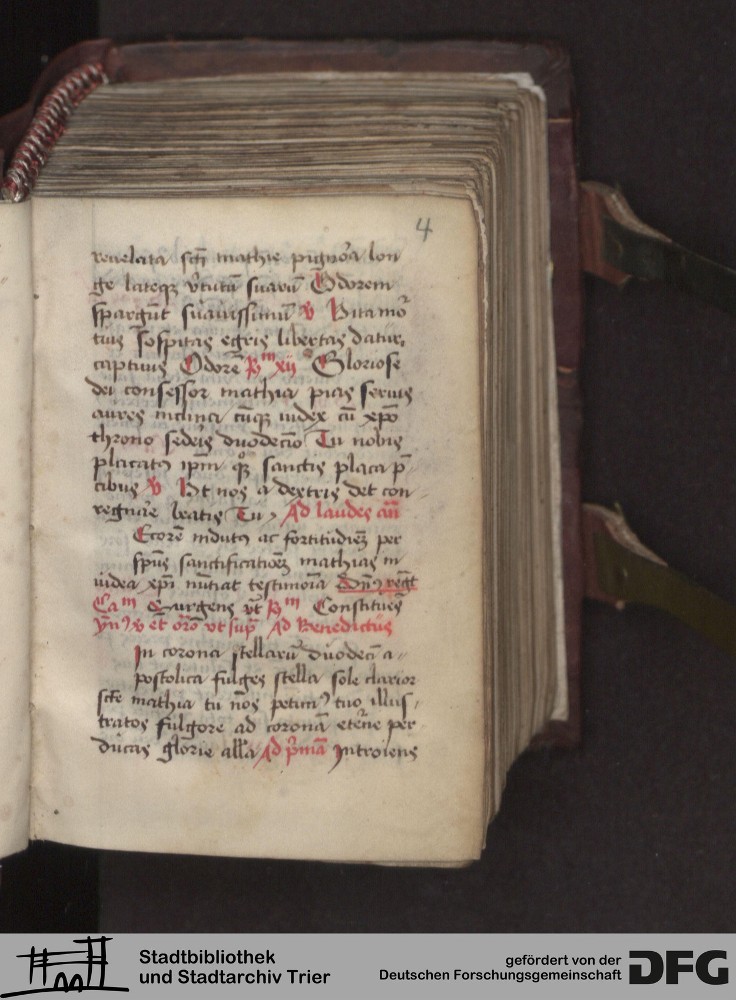 4
reuelata scti mathie pignora lon
ge lateqz vtutu suaru Odorem
spargut suauissimu v Vita mor
tuis sospitas egris libertas datur
captiuis Odore Rm xij Gloriose
dei confessor mathia pias seruis
aures inclina cuqz iudex cu xpo
throno sedeis duodecio Tu nobis
placato ipm qs sanctis placa p
cibus v Ut nos a dextris det con
regnare beatis Tu Ad laudes an
Ecore indutus ac fortitudiez per
spus sanctificatioez mathias in
iudea xpi nutiat testimoia Dns regt
Cam Exurgens vt Rm Constitues
yn v et oro vt sup Ad Benedictus
In corona stellaru duodeci a
postolica fulges stella sole clarior
scte mathia tu nos petim tuo illus
tratos fulgore ad corona eterne per
ducas glorie alla Ad pma Introiens
Stadtbibliothek
und Stadtarchiv Trier
gefördert von der
Deutschen Forschungsgemeinschaft
DFG